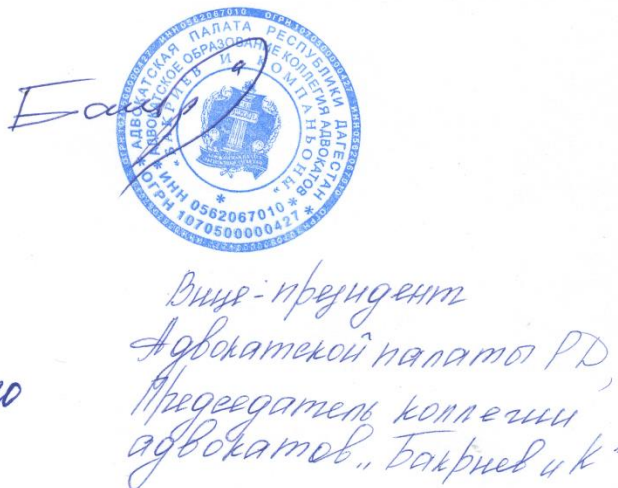 АДВОКАТСКАЯ ПАЛАТА РЕСПУБЛИКИ ДАГЕСТАН
АДВОКАТСКОЕ ОБРАЗОВАНИЕ КОЛЛЕГИЯ АДВОКАТОВ
"БАКРИЕВ И КОМПАНЬОНЫ"
* ИНН 0562067010 *
* ОГРН 1070500000427 *
Вице-президент
Адвокатской палаты РД,
Председатель коллегии
адвокатов „Бакриев и К"